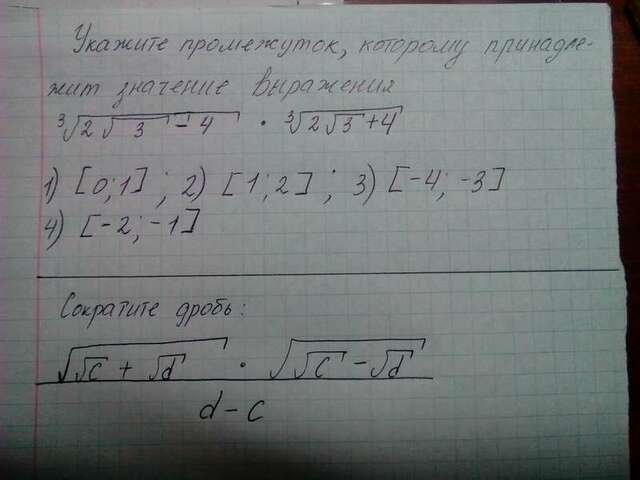 Укажите промежуток, которому принадле-
жит значение выражения
∛(2√3 - 4) · ∛(2√3 + 4)
1) [0;1] ; 2) [1;2] ; 3) [-4; -3]
4) [-2; -1]
Сократите дробь:
√(√c + √d) · √(√c - √d)
d - c